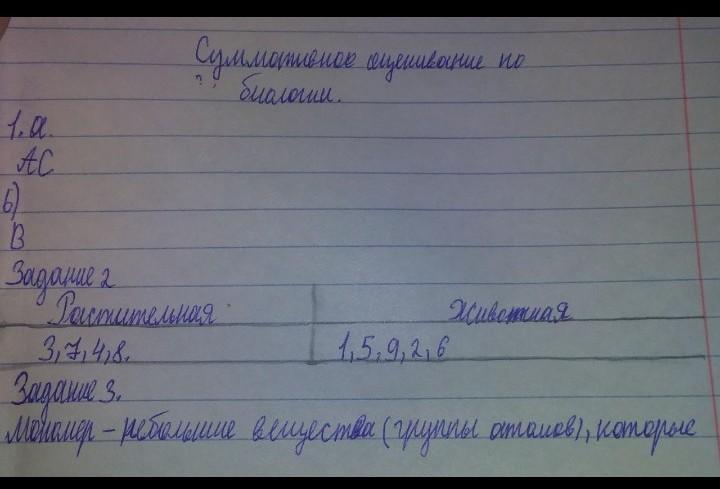 Суммативное оценивание по
биологии.
1. а.
АС
б)
В
Задание 2
Растительная Животная
3, 7, 4, 8. 1, 5, 9, 2, 6
Задание 3.
Мономер – небольшие вещества (группы атомов), которые